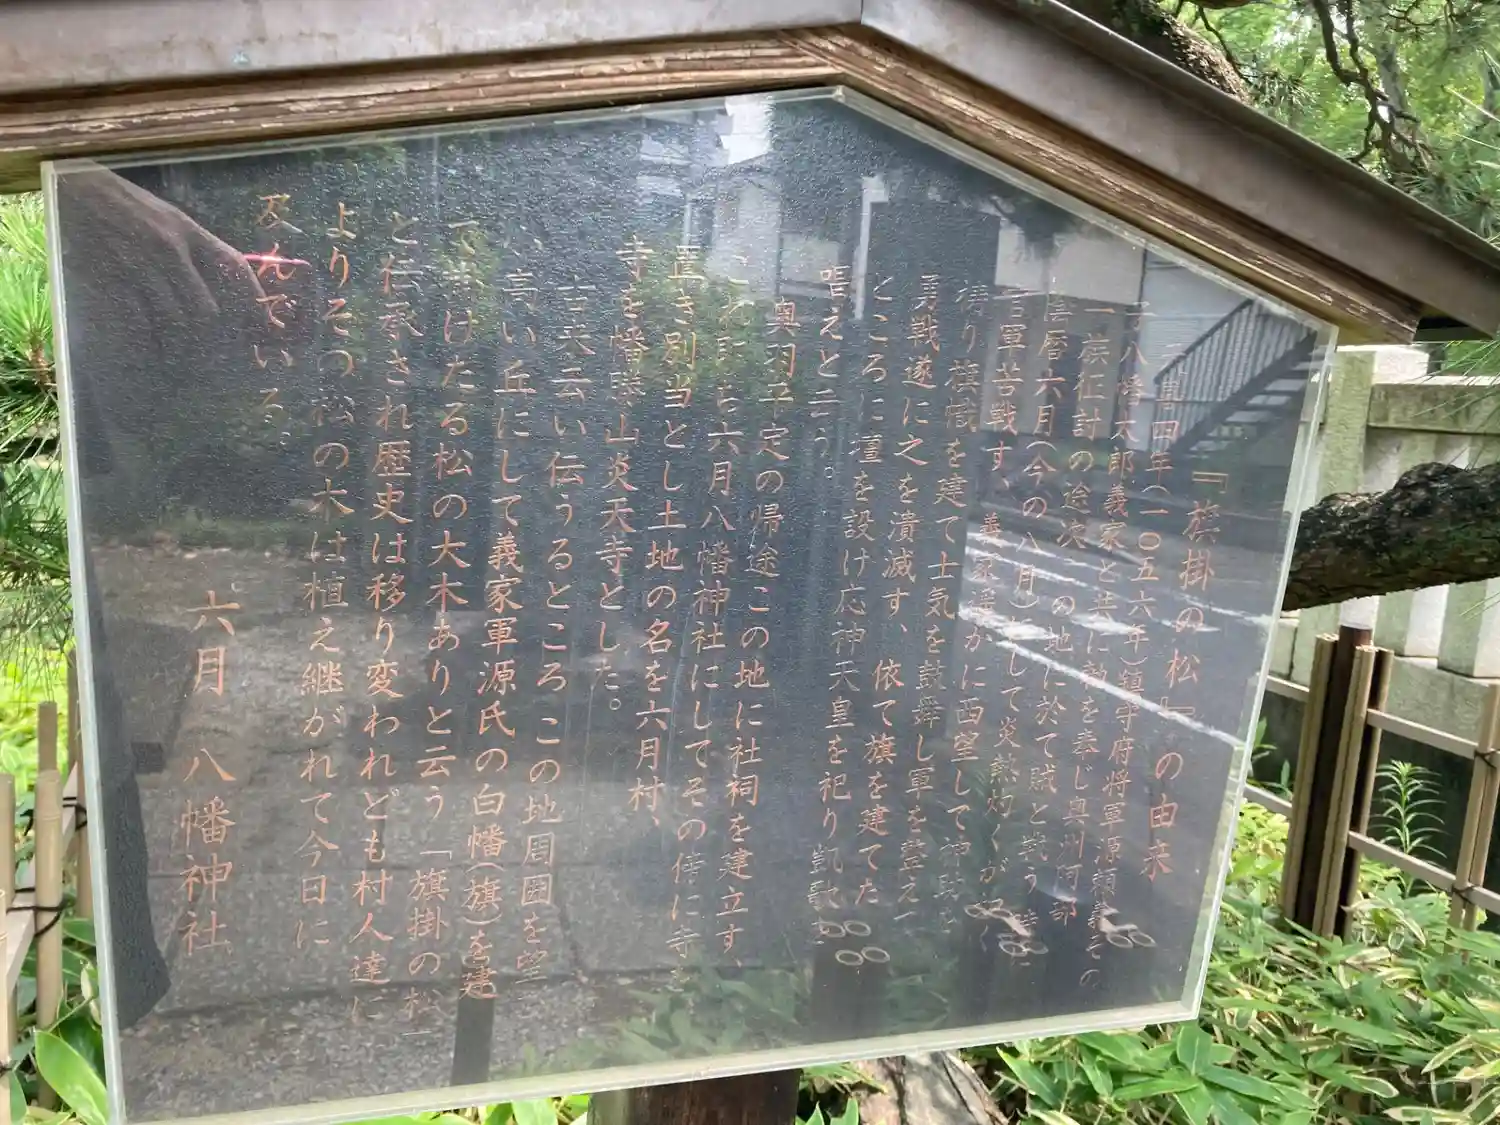 『旗掛の松』の由来
四年(一〇五六年)鎮守府将軍源頼義その
子八幡太郎義家と共に勅を奉じ奥州阿部
一族征討の途次、この地に於て賊と戦う 時に
暦六月(今の八月)にして炎熱灼くが
官軍苦戦す、義家遥かに西望して神助を
祷り旗幟を建て士気を鼓舞し軍を整え
勇戦遂に之を潰滅す、依て旗を建てた
ところに壇を設け応神天皇を祀り凱歌を
唱えと云う。
奥羽平定の帰途この地に社祠を建立す、
これ即ち六月八幡神社にしてその傍に寺を
置き別当とし土地の名を六月村、
寺を幡勝山炎天寺とした。
古来云い伝うるところこの地周囲を望
い高い丘にして義家軍源氏の白幡(旗)を建
て掛けたる松の大木ありと云う「旗掛の松」
と伝承され歴史は移り変われども村人達に
よりその松の木は植え継がれて今日に
及んでいる。
六月 八幡神社